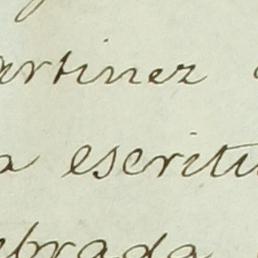 artinez
a escritu
ebrada